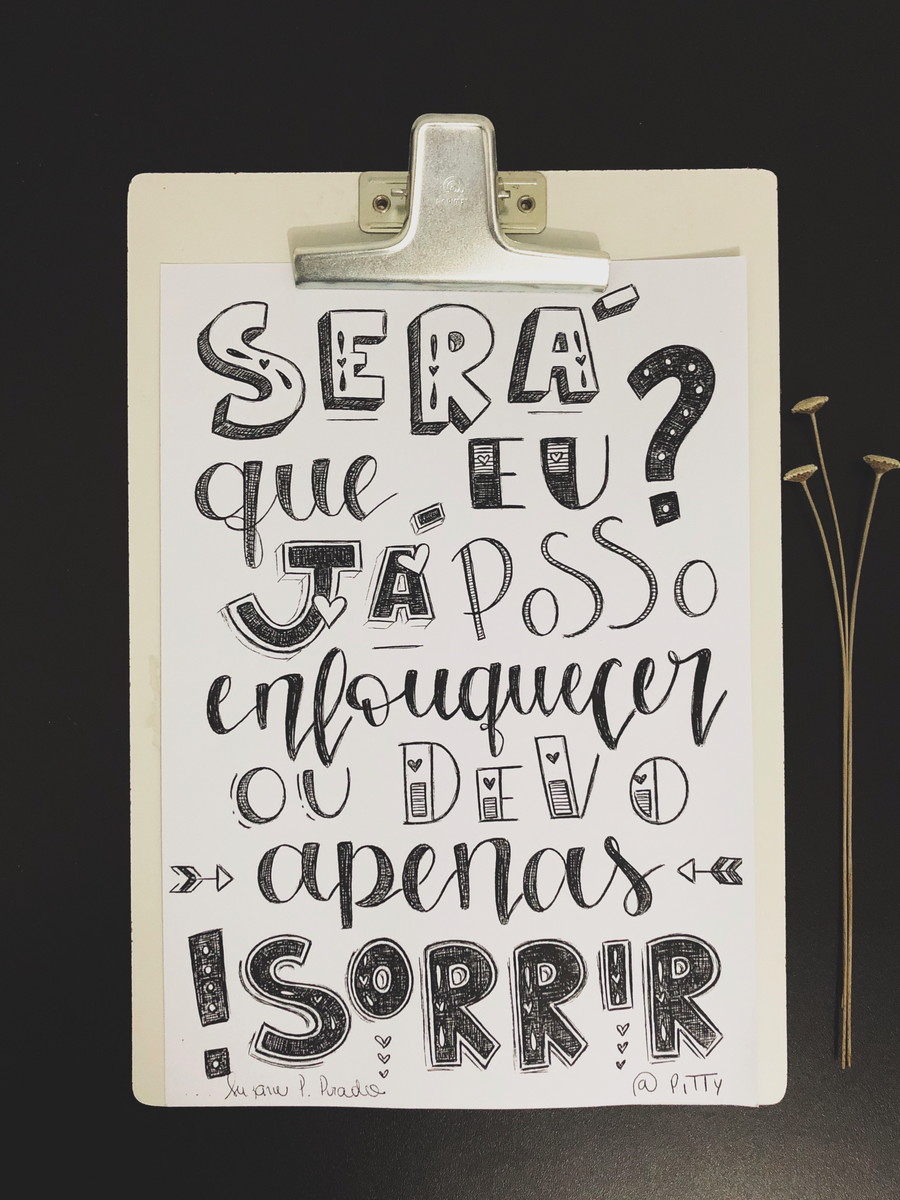 SERÁ?
que EU
JÁ POSSO
enlouquecer
OU DEVO
apenas
!SORRIR
@ PITTY